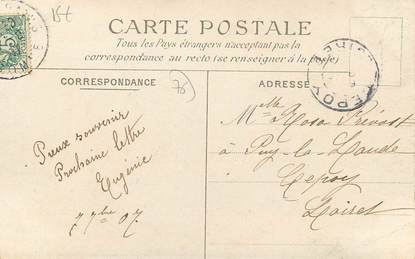 15t
CARTE POSTALE
Tous les Pays étrangers n'acceptant pas la
correspondance au recto (se renseigner à la poste)
CORRESPONDANCE
ADRESSE
78
CEPOY
Preux souvenir
Prochaine lettre
Eugénie
7 7bre 07
Mlle Rosa Prévost
à Puy-la-Laude
Cepoy
Loiret